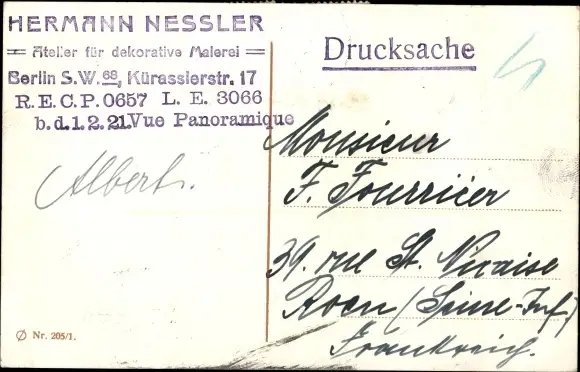 HERMANN NESSLER
= Atelier für dekorative Malerei =
Berlin S.W. 68, Kürassierstr. 17
R.E.C.P.0657 L. E. 3066
b.d.1.2.21.Vue Panoramique
Drucksache
Albert.
Monsieur
F. Fourrier
39. rue St. Nicaise
Roen (Seine-Inf)
Frankreich.
Nr. 205/1.